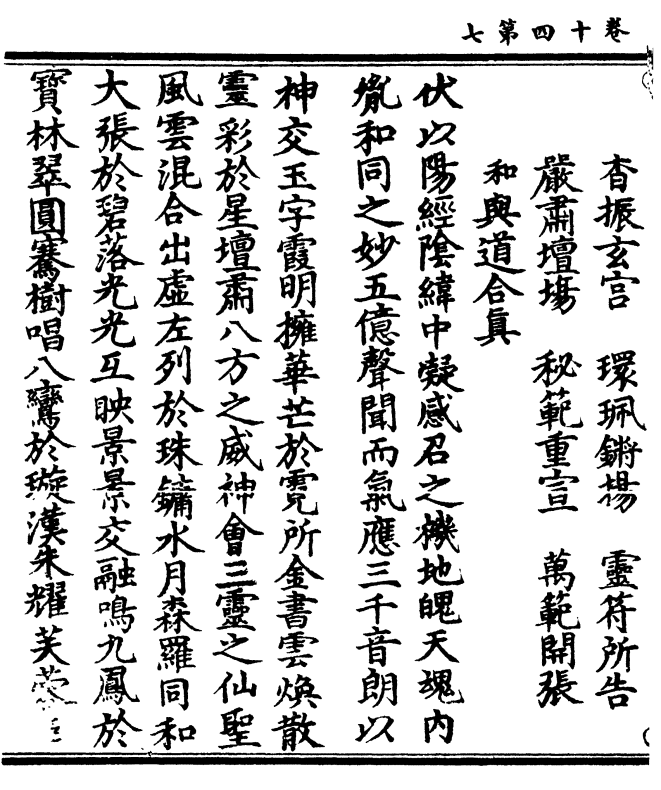 卷十四第七
杳振玄宫　環珮鏘揚　靈符所告
嚴肅壇場　秘範重宣　萬範開張
和與道合真
伏以陽經陰緯中凝感召之機地魄天魂內
胤和同之妙五億聲聞而氣應三千音朗以
神交玉字霞明擁華芒於霓所金書雲煥散
靈彩於星壇肅八方之威神會三靈之仙聖
風雲混合出虛左列於珠鏞水月森羅同和
大張於碧落光光互映景景交融鳴九鳳於
寶林翠圓騫樹唱八鸞於璇漢朱耀芙蓉